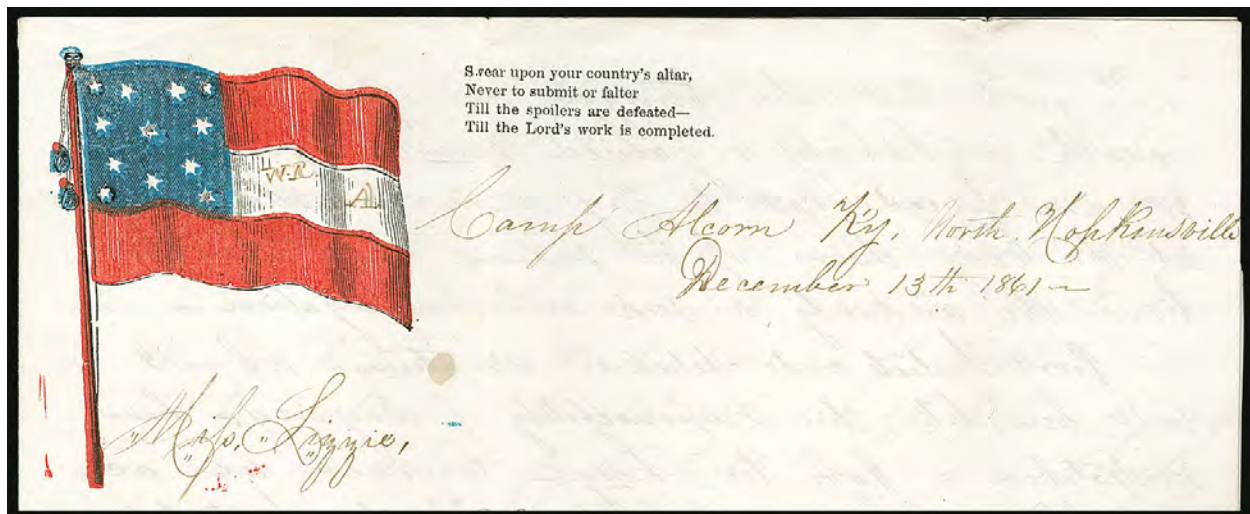 Swear upon your country's altar,
Never to submit or falter
Till the spoilers are defeated—
Till the Lord's work is completed.
W. R. A
Camp Alcorn Ky, North Hopkinsville
December 13th 1861—
Miss, Lizzie,